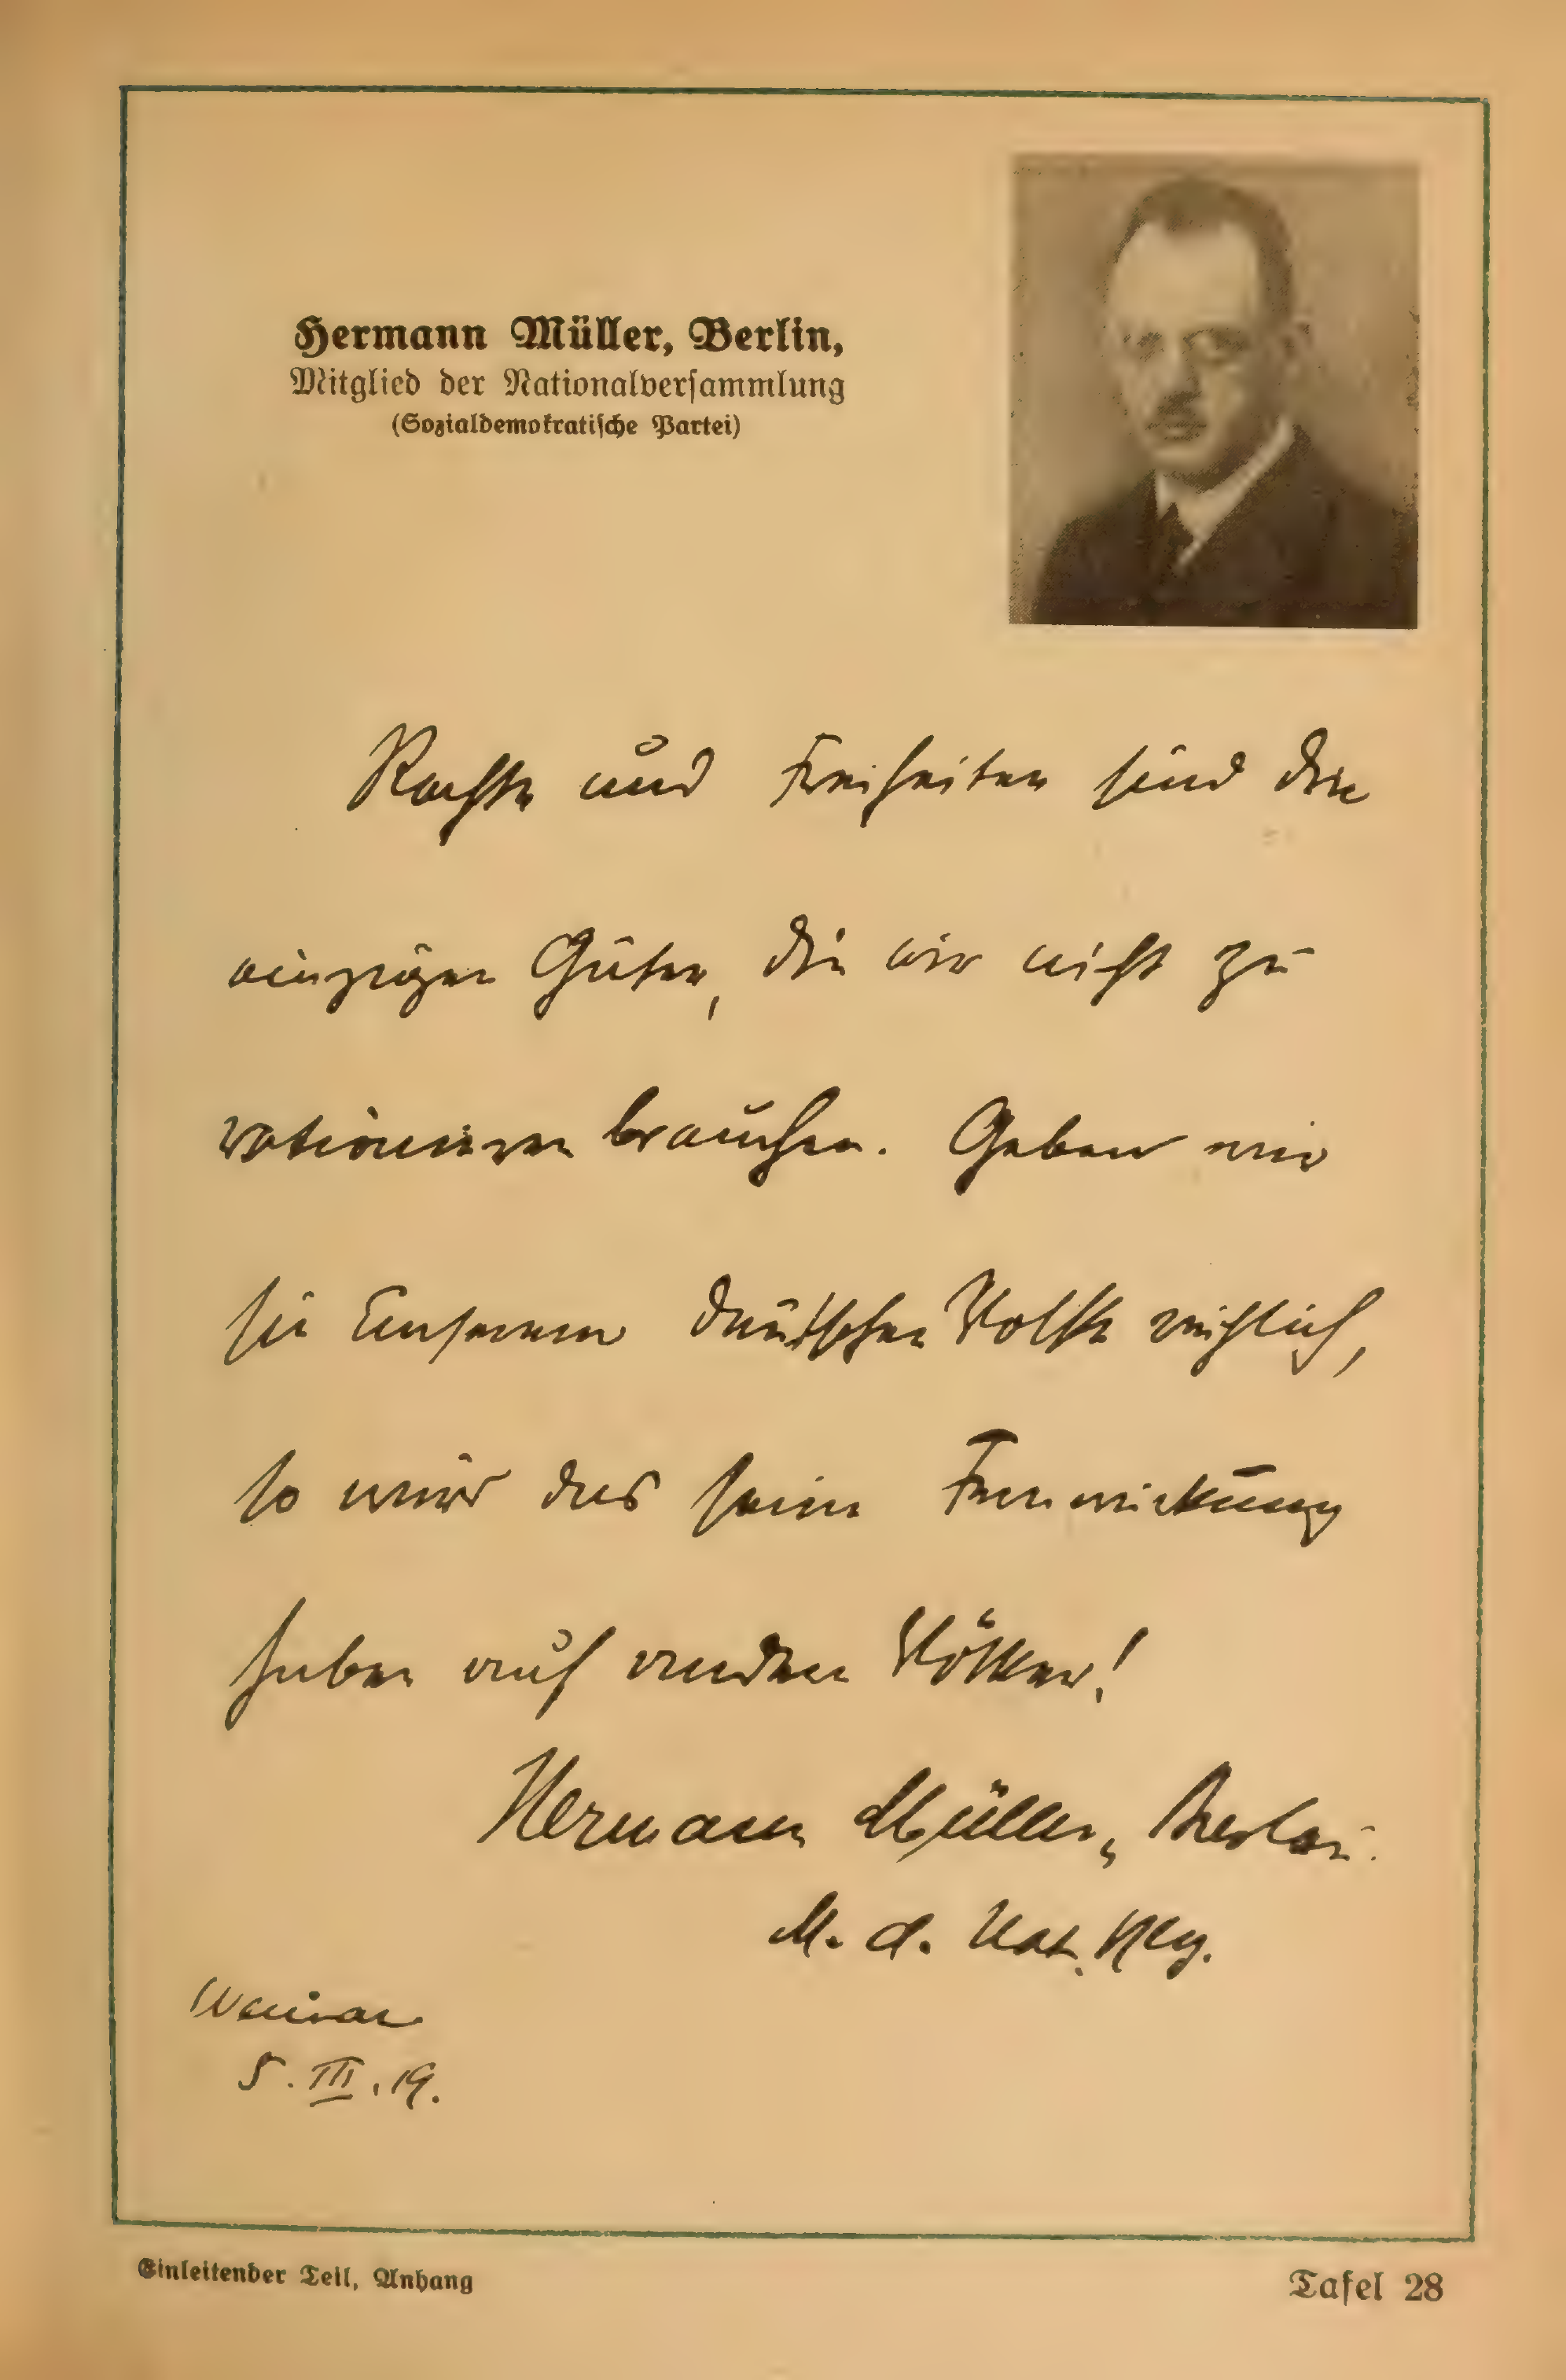 Hermann Müller, Berlin,
Mitglied der Nationalversammlung
(Sozialdemokratische Partei)
Rechte und Freiheiten sind die
einzigen Güter, die wir nicht zu
rationieren brauchen. Geben wir
sie unserem deutschen Volke reichlich,
so wird das seine Fernwirkung
haben auf andere Völker!
Hermann Müller, Berlin.
M. d. Nat. Vlg.
Weimar
5. III. 19.
Einleitender Teil, Anhang
Tafel 28